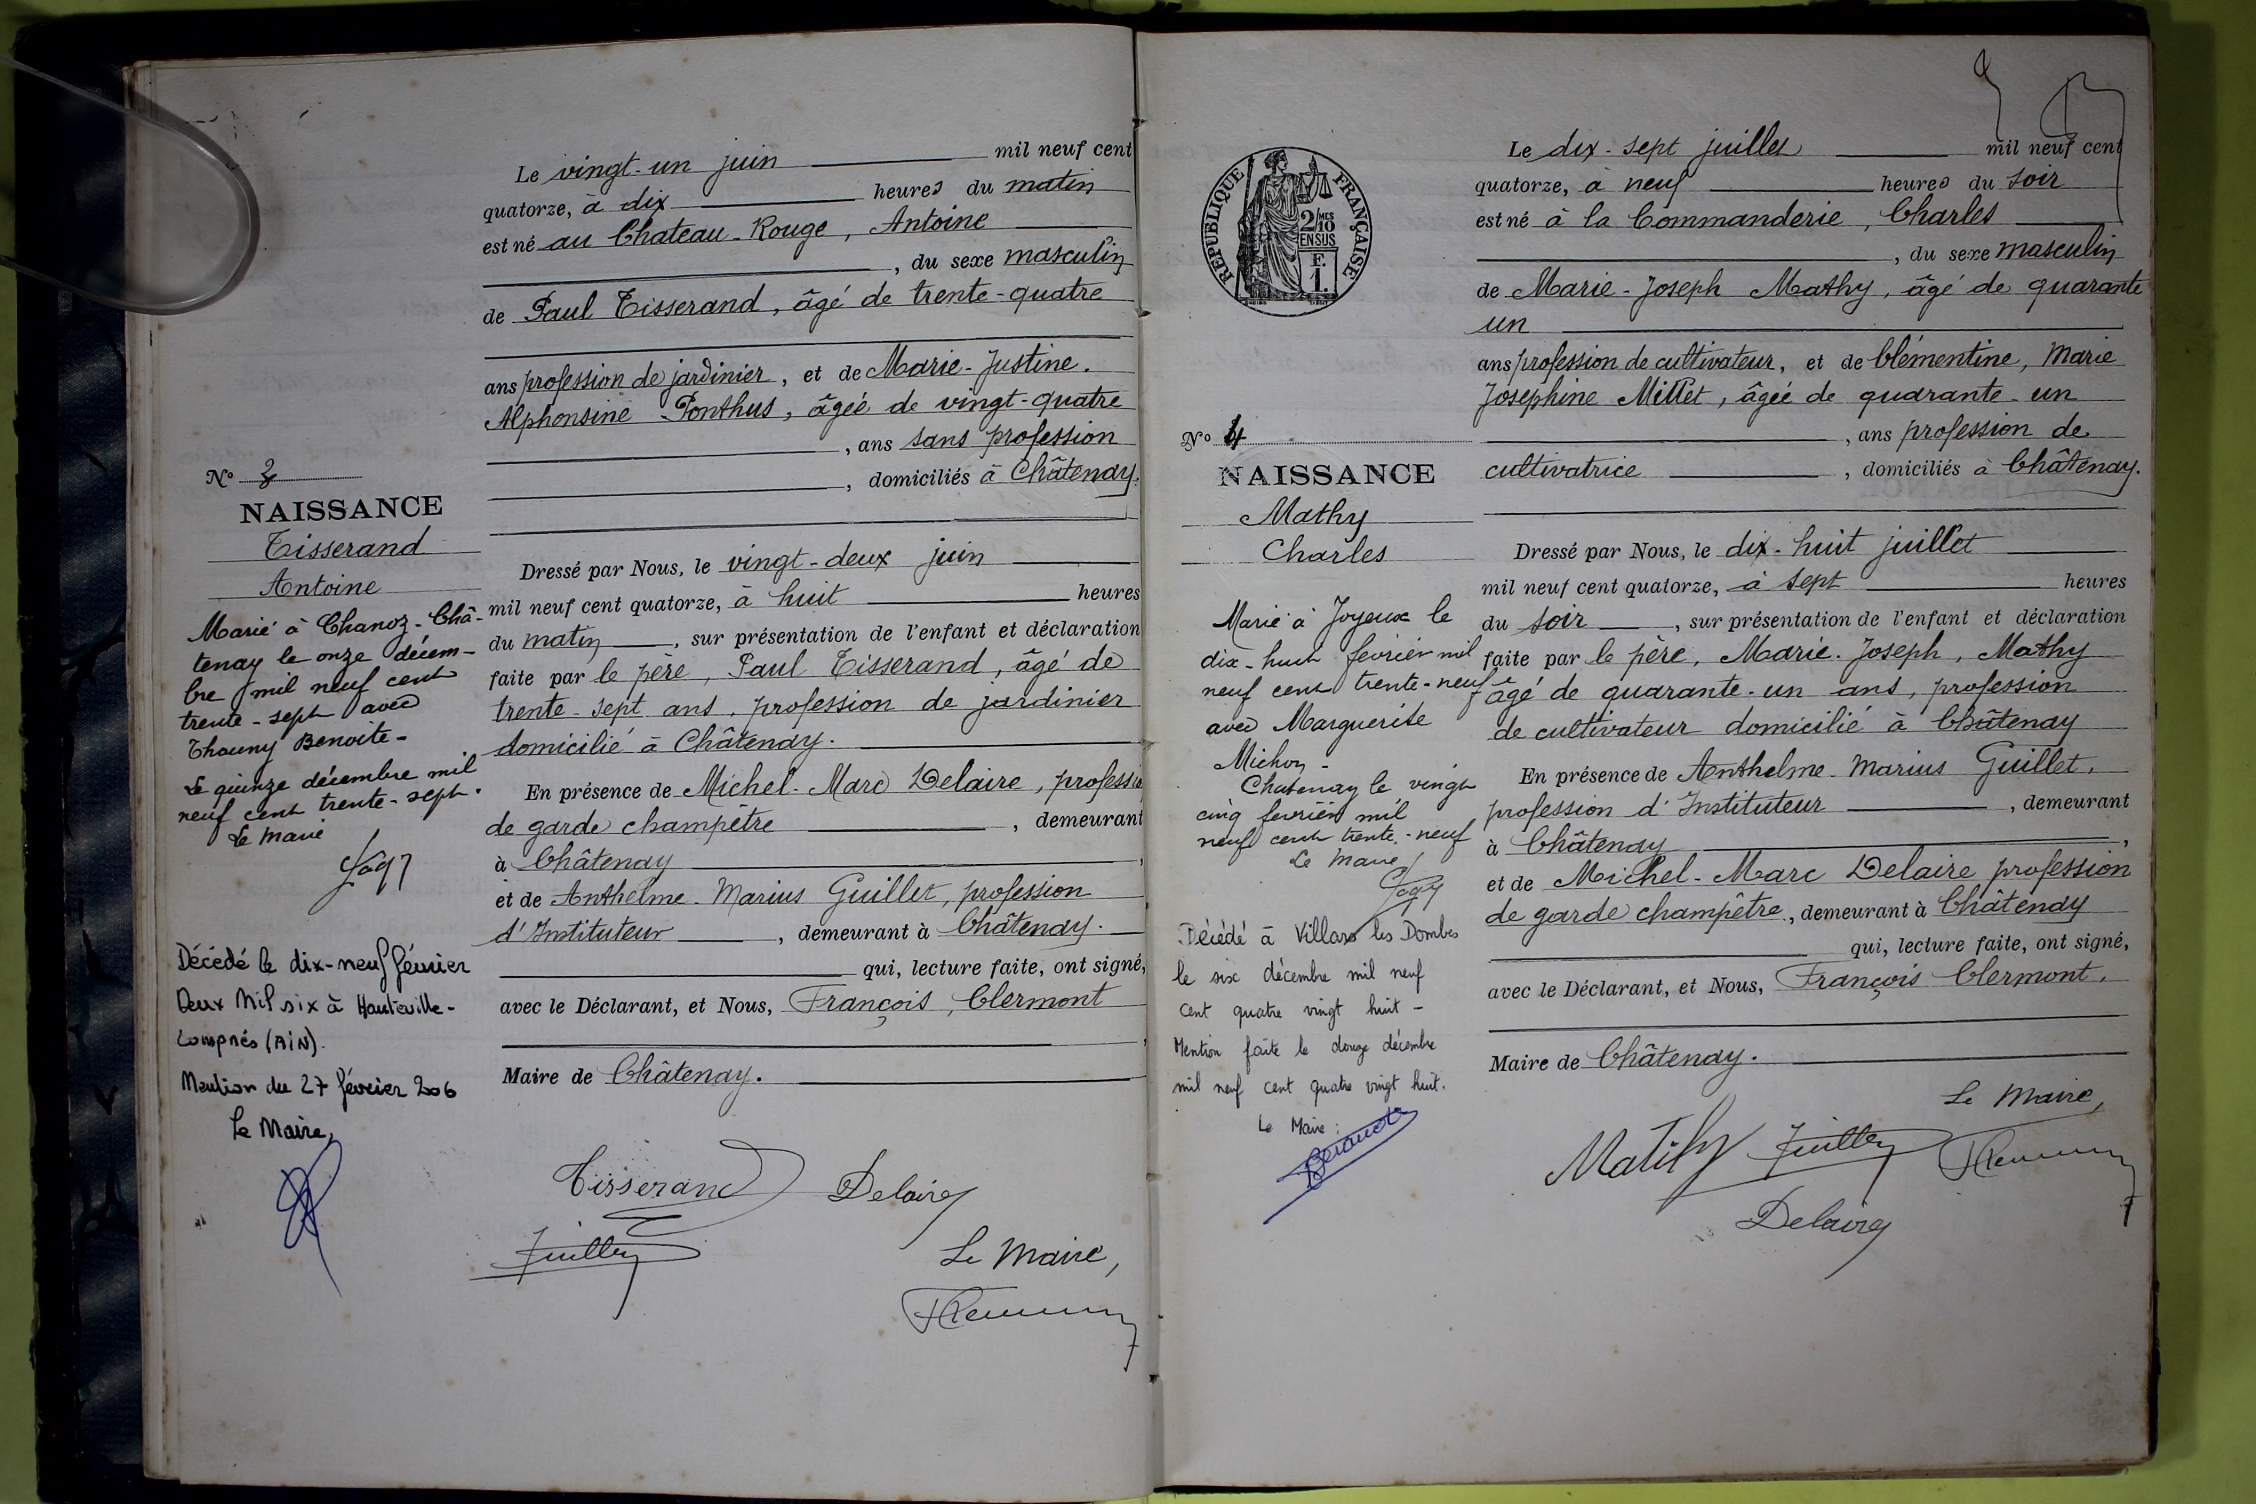 Le vingt-un juin mil neuf cent
quatorze, à dix heures du matin
est né au Chateau-Rouge, Antoine
, du sexe masculin
de Paul Tisserand, âgé de trente-quatre
ans profession de jardinier, et de Marie-Justine.
Alphonsine Ponthus, âgée de vingt-quatre
, ans sans profession
, domiciliés à Châtenay.
Dressé par Nous, le vingt-deux juin
mil neuf cent quatorze, à huit heures
du matin, sur présentation de l'enfant et déclaration
faite par le père, Paul Tisserand, âgé de
trente-sept ans, profession de jardinier
domicilié à Châtenay.
En présence de Michel-Marc Delaire, professio
de garde champêtre, demeurant
à Châtenay,
et de Anthelme-Marius Guillet, profession
d'Instituteur, demeurant à Châtenay.
qui, lecture faite, ont signé,
avec le Déclarant, et Nous, François, Clermont
Maire de Châtenay.
Tisserand Delaire
Guillet
Le Maire,
N° 3
NAISSANCE
Tisserand
Antoine
Marié à Chanoz-Châ-
tenay le onze décem-
bre mil neuf cent
trente-sept avec
Thouny Benoite-
Le quinze décembre mil
neuf cent trente-sept.
Le Maire
Décédé le dix-neuf février
Deux Mil six à Hauteville-
Lompnés (AIN).
Mention du 27 février 2006
Le Maire,
RÉPUBLIQUE FRANÇAISE
2/10 MES
EN SUS
F.
1.
N° 4
NAISSANCE
Mathy
Charles
Marié à Joyeux le
dix-huit février mil
neuf cent trente-neuf
avec Marguerite
Michon-
Chatenay le vingt
cinq février mil
neuf cent trente-neuf
Le Maire
Décédé à Villars les Dombes
le six décembre mil neuf
cent quatre vingt huit-
Mention faite le douze décembre
mil neuf cent quatre vingt huit.
Le Maire:
Le dix-sept juillet mil neuf cent
quatorze, à neuf heures du soir
est né à la Commanderie, Charles
, du sexe masculin
de Marie-Joseph Mathy, âgé de quarante
un
ans profession de cultivateur, et de Clémentine, Marie
Josephine Millet, âgée de quarante-un
, ans profession de
cultivatrice, domiciliés à Châtenay.
Dressé par Nous, le dix-huit juillet
mil neuf cent quatorze, à sept heures
du soir, sur présentation de l'enfant et déclaration
faite par le père, Marie-Joseph, Mathy
âgé de quarante-un ans, profession
de cultivateur domicilié à Châtenay
En présence de Anthelme-Marius Guillet,
profession d'Instituteur, demeurant
à Châtenay,
et de Michel-Marc Delaire profession
de garde champêtre, demeurant à Châtenay
qui, lecture faite, ont signé,
avec le Déclarant, et Nous, François Clermont,
Maire de Châtenay.
Le Maire,
Mathy Guillet
Delaire